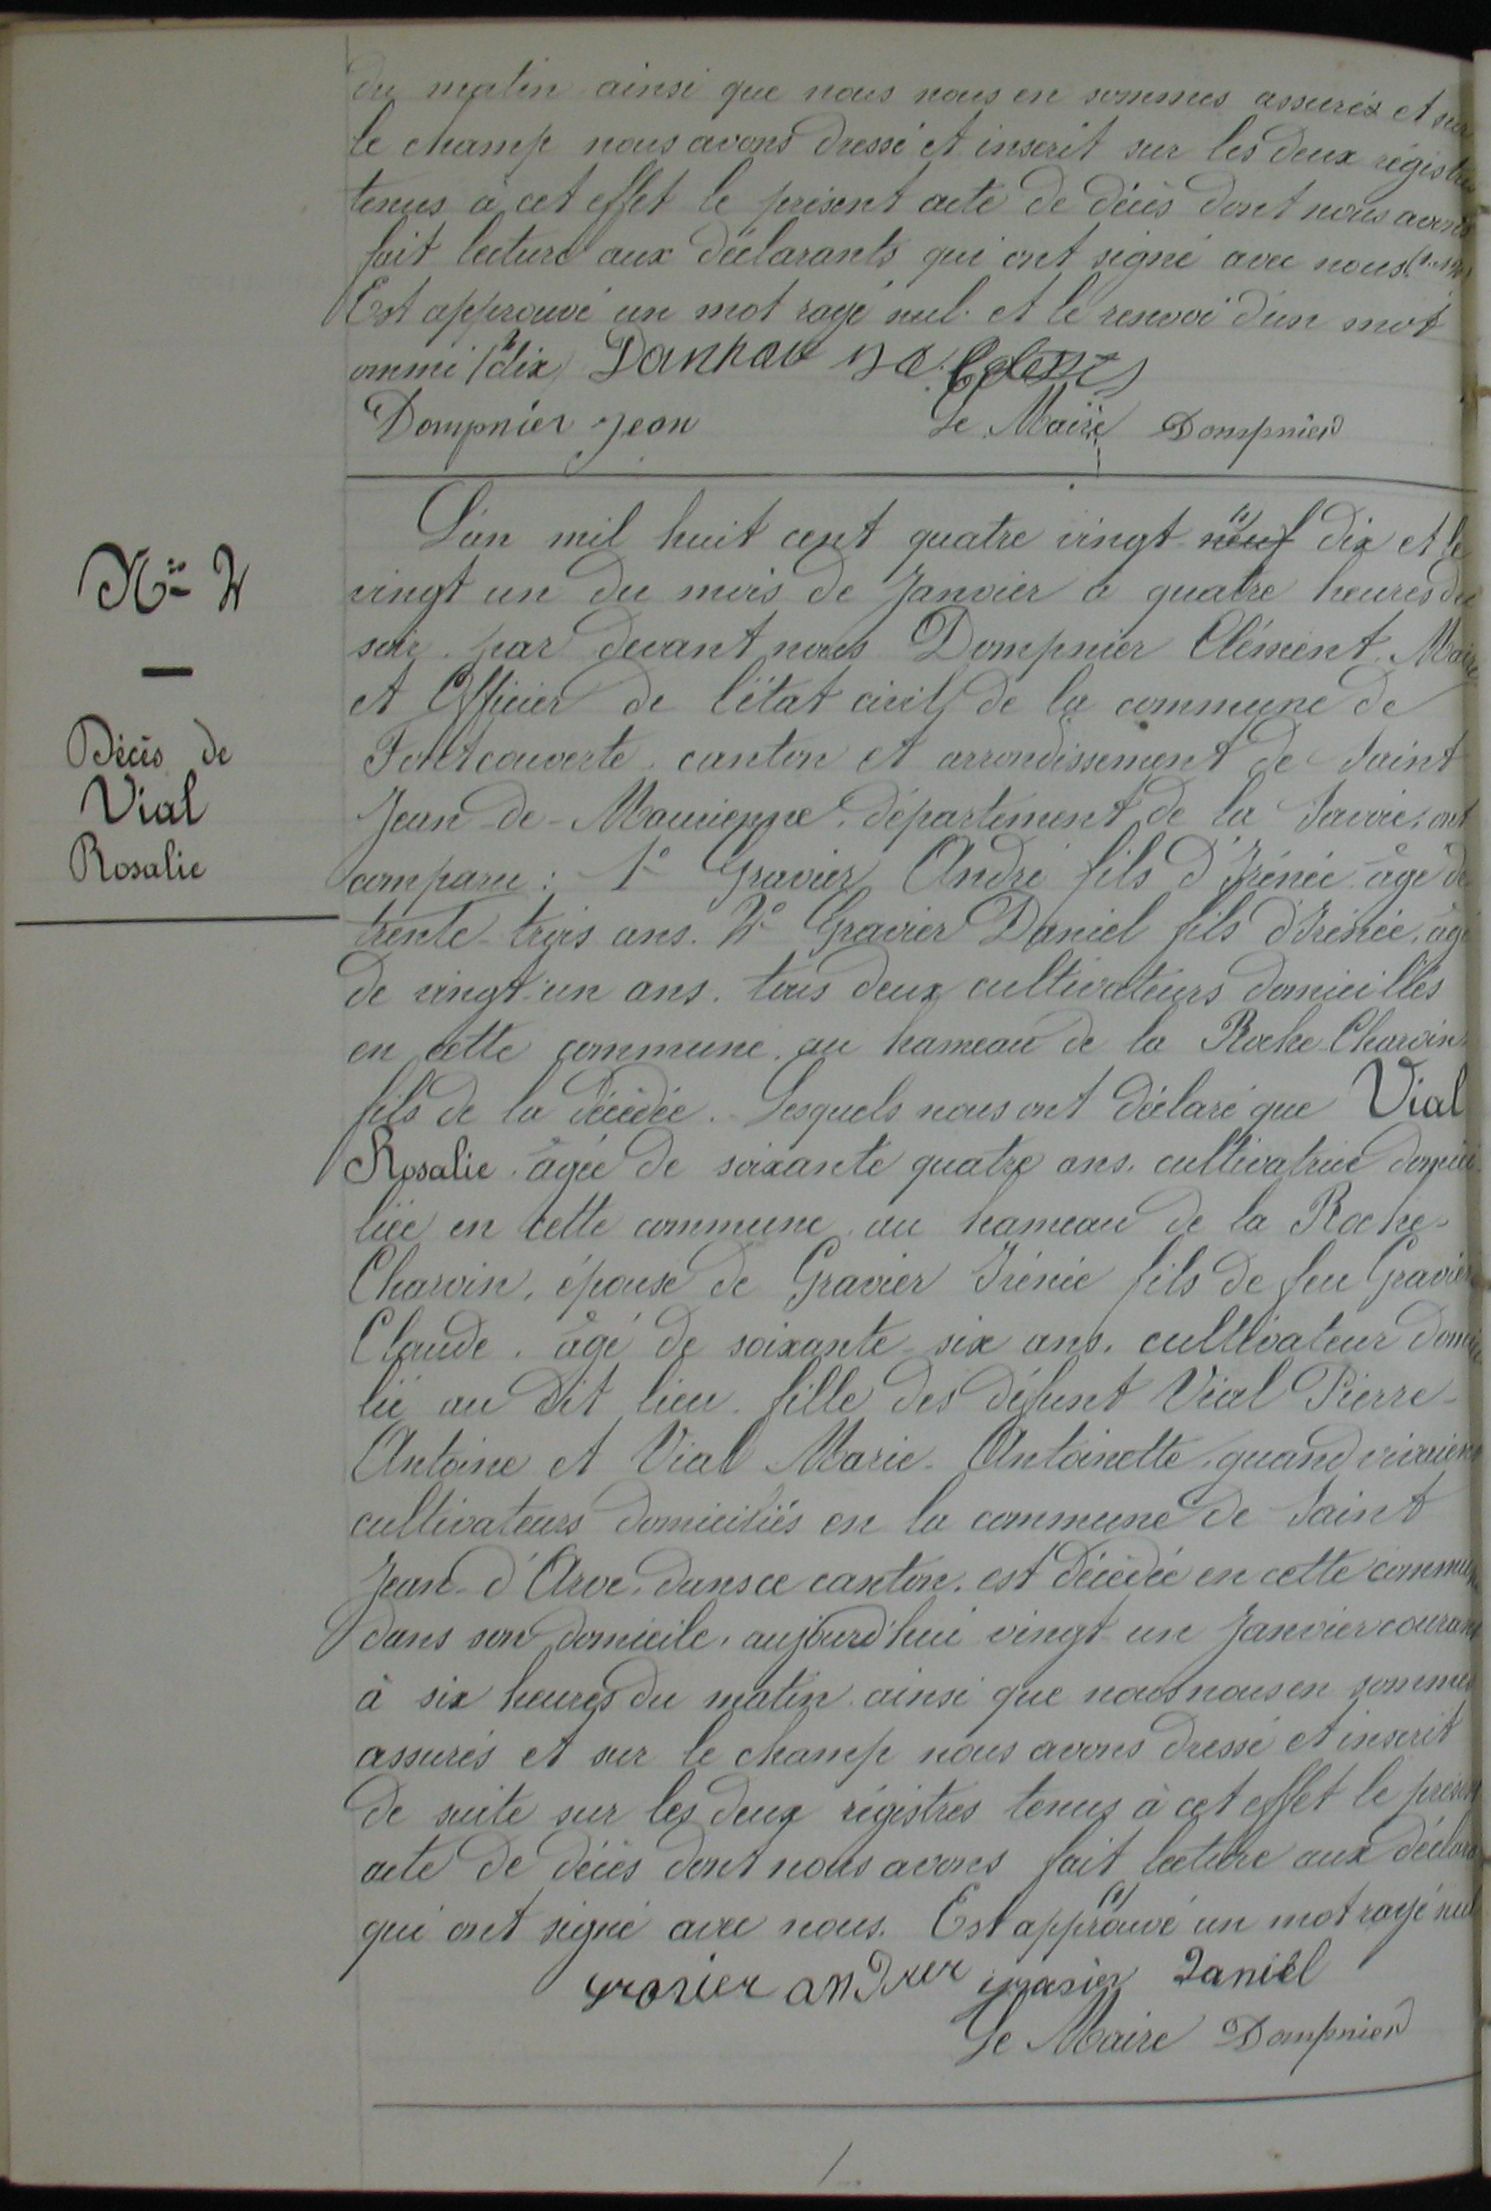 du matin ainsi que nous nous en sommes assurés et sur
le champ nous avons dressé et inscrit sur les deux régistres
tenus à cet effet le présent acte de décès dont nous avons
fait lecture aux déclarants qui ont signé avec nous.
Est approuvé un mot rayé nul et le renvoi d'un mot
ommi dix
Dompnier Jean Le Maire Dompnier
N° 2
Décès de
Vial
Rosalie
L'an mil huit cent quatre vingt neuf (1) dix et le
vingt un du mois de Janvier à quatre heures du
soir. par devant nous Dompnier Clément, Maire
et Officier de l'état civil de la commune de
Fontcouverte. canton et arrondissement de Saint
Jean-de-Maurienne. département de la Savoie, ont
comparu : 1° Gravier André fils d'Irénée âgé de
trente-trois ans. 2° Gravier Daniel fils d'Irénée, âgé
de vingt-un ans. tous deux cultivateurs domiciliés
en cette commune. au hameau de la Roche-Charvin
fils de la décédée. Lesquels nous ont déclaré que Vial
Rosalie. âgée de soixante quatre ans. cultivatrice domici-
liée en cette commune au hameau de la Roche-
Charvin, épouse de Gravier Irénée fils de feu Gravier
Claude. âgé de soixante-six ans. cultivateur domici
lié au dit lieu. fille des défunt Vial Pierre-
Antoine et Vial Marie-Antoinette, quand vivaient
cultivateurs domiciliés en la commune de Saint
Jean-d'Arve, dans ce canton. est décédée en cette commune
dans son domicile, aujourd'hui vingt-un Janvier courant
à six heures du matin ainsi que nous nous en sommes
assurés et sur le champ nous avons dressé et inscrit
de suite sur les deux régistres tenus à cet effet le présent
acte de décès dont nous avons fait lecture aux déclara
qui ont signé avec nous. Est approuvé (1) un mot rayé nul
gravier andrer gravier Daniel
Le Maire Dompnier